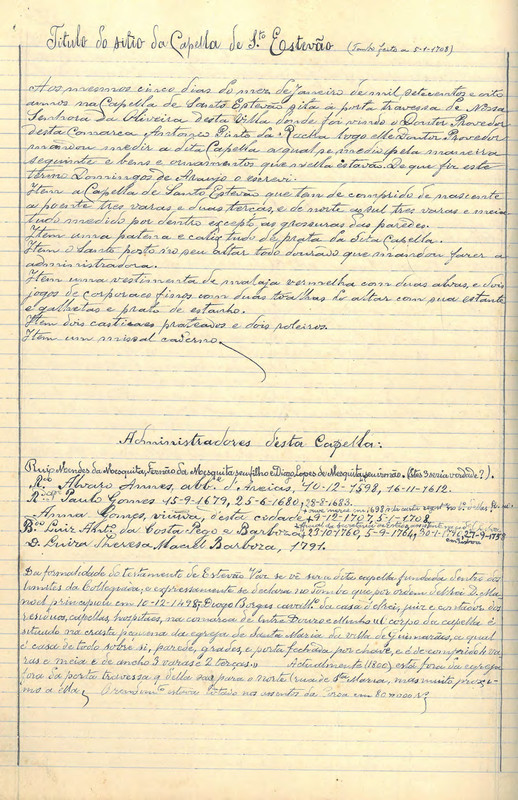 Titulo do sitio da Capella de S.to Estevão (Tombo feito a 5-1-1708)
Aos mesmos cinco dias do mez de Janeiro de mil setecentos e oito
annos na Capella de Santo Estevão sita á porta travessa de Nossa
Senhora da Oliveira desta Villa donde foi vindo o Doutor Provedor
desta Comarca Antonio Pinto da Rocha logo elle Doutor Provedor
mandou medir a dita Capella a qual se mediu pela maneira
seguinte e bens e ornamentos que nella estavão. De que fiz este
termo Domingos de Araujo o escrevi.
Item a Capella de Santo Estevão que tem de comprido de nascente
a poente tres varas e duas terças, e de norte ao sul tres varas e meia
tudo medido por dentro excepto as grossuras das paredes.
Item uma patena e calix tudo de prata da dita Capella.
Item o Santo posto no seu altar todo dourado que mandou fazer a
administradora.
Item uma vestimenta de vermelha com duas alvas, e dois
jogos de corporaes finos com duas toalhas do altar com sua estante
e galhetas e prato de estanho.
Item dois castiçaes prateados e dois roleiros.
Item um missal caderno.
Administradores desta Capella:
Ruy Mendes da Mesquita, Fernão da Mesquita seu filho e Diogo Lopes de Mesquita, seu irmão. (Stes 3 seria verdade?).
Alvaro Annes, abb.e d'Areias, 10-12-1598, 16-11-1612.
Paulo Gomes 15-9-1679, 25-6-1680, 28-8-1683.
Anna Gomes, viuva, d'esta cidade, 19-12-1707, 5-1-1708
Luiz da Costa Pego e Barboza, 23-10-1760, 5-9-1764, 27-9-1758
D. Luiza Thereza Maciel Barboza, 1791.
Da formalidade do testamento de Estevão Vaz se vê ser a dita capella fundada dentro dos
limites da Collegiada, e expressamente se declara no tombo que por ordem d'elrei D. Ma-
noel principiou em 10-12-1498, Diogo Borges cavall.ro da casa d'elrei, juiz e contador dos
residuos, capellas, hospitaes, na comarca de Entre Douro e Minho "o corpo da capella é
situado na crasta pequena da egreja de Santa Maria da villa de Guimarães, a qual
é casa de todo sobre si, parede, grades, e porta fechada por chave, e é de comprido 4 va-
ras e meia e de ancho 3 varas e 2 terças." Actualmente (1800) está fora da egreja
fora da porta travessa d'ella sae para o norte (rua de S.ta Maria), mas muito proxi-
mo a ella. O rendim.to estava lotado nos assentos da Coroa em 80$000 R.s